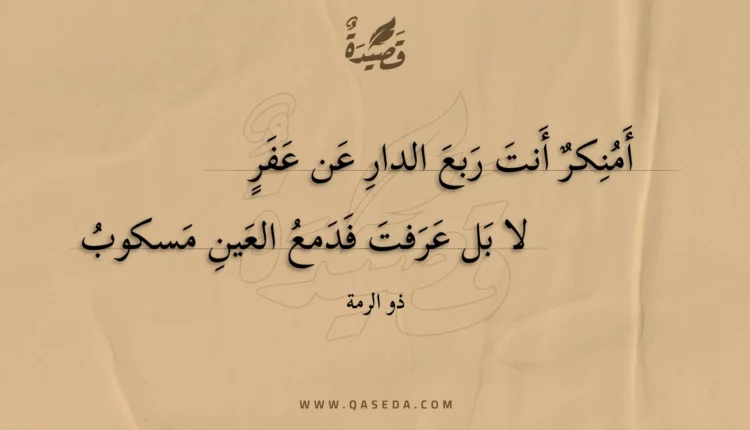 قَصِيْدَةٌ
أَمُنِكرٌ أَنتَ رَبعَ الدارِ عَن عَفَرٍ
لا بَل عَرَفتَ فَدَمعُ العَينِ مَسكوبُ
ذو الرمة
WWW.QASEDA.COM